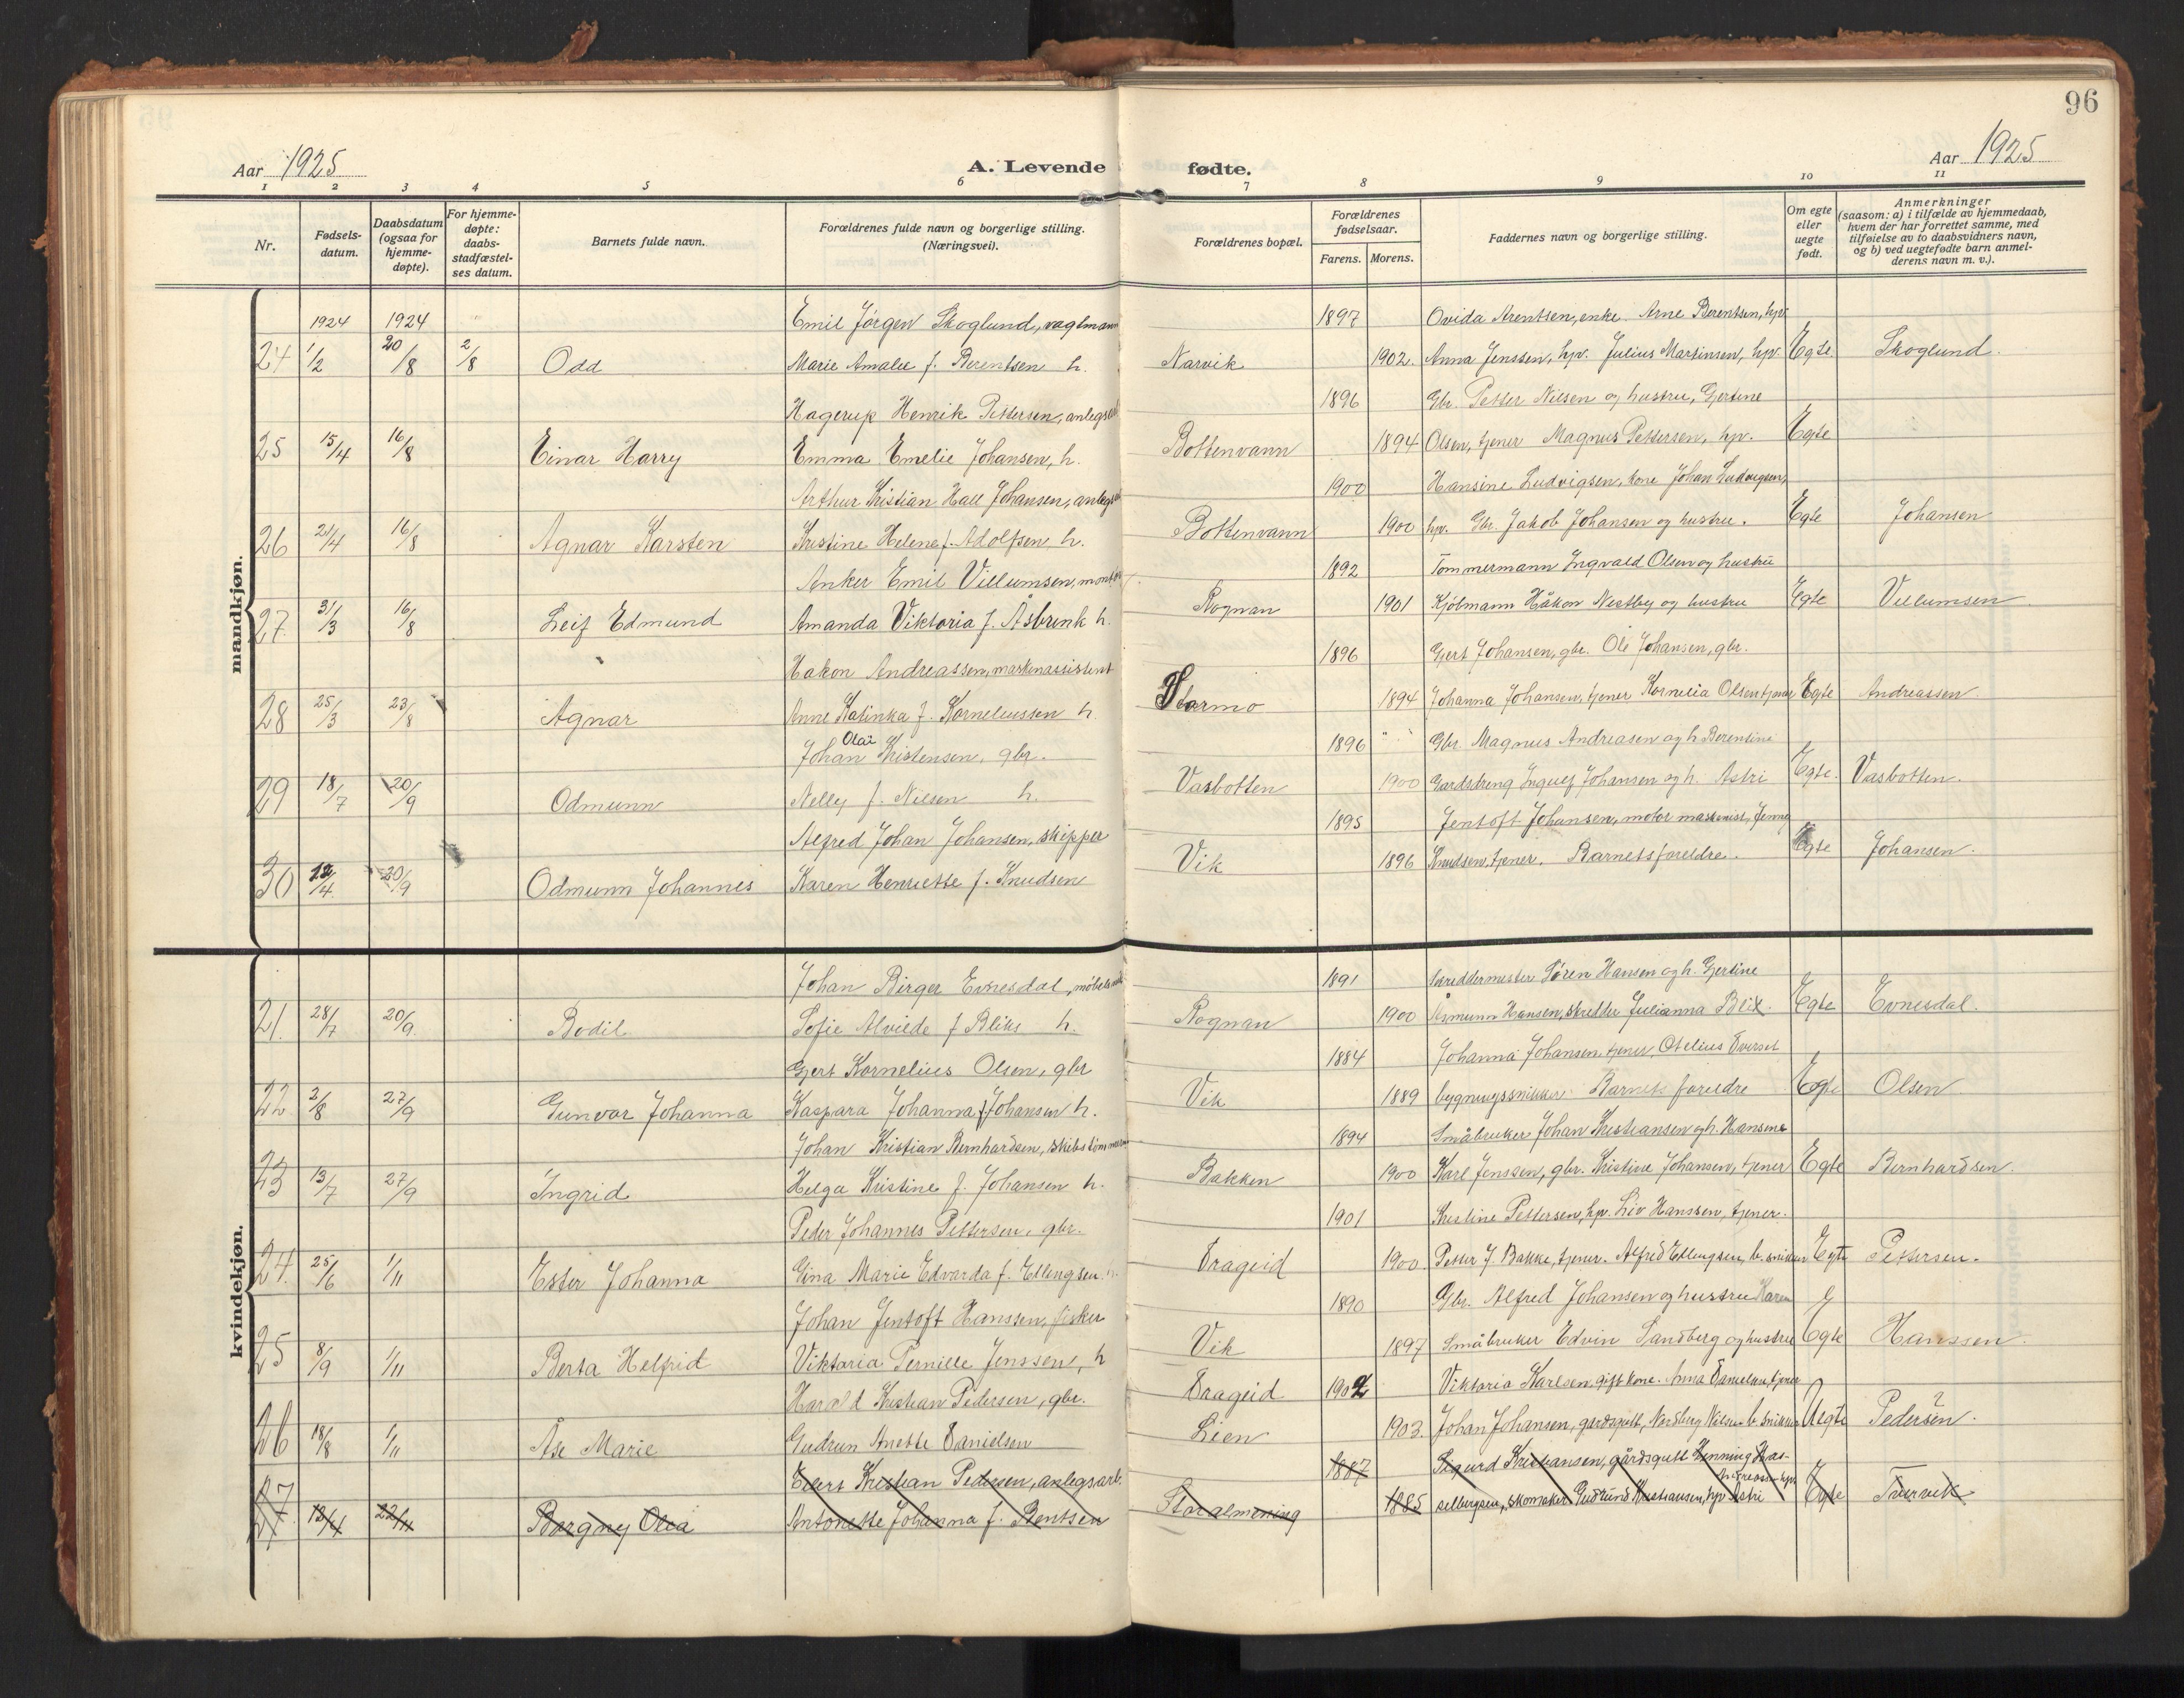 96
Aar 1925
A. Levende fødte.
Aar 1925
1 2 3 4 5 6 7 8 9 10 11
Nr.
Fødsels-
datum.
Daabsdatum
(ogsaa for
hjemme-
døpte).
For hjemme-
døpte:
daabs-
stadfæstel-
ses datum.
Barnets fulde navn.
Forældrenes fulde navn og borgerlige stilling.
(Næringsvei).
Forældrenes bopæl.
Forældrenes
fødselsaar.
Farens. Morens.
Faddernes navn og borgerlige stilling.
Om egte
eller
uegte
født.
Anmerkninger
(saasom: a) i tilfælde av hjemmedaab,
hvem der har forrettet samme, med
tilføielse av to daabsvidners navn,
og b) ved uegtefødte barn anmel-
derens navn m. v.).
mandkjøn.
1924 1924 Emil Jørgen Skoglund, vaglmann 1897 Ovida Arentsen, enke. Arne Berentsen, hpv
24 1/2 20/8 2/8 Odd Marie Amalie f. Berentsen h. Narvik 1902. Anna Jenssen, hpv. Julius Martinsen, hpv. Egte Skoglund.
Hagerup Henrik Pettersen, anlegsarb 1896 Gbr. Petter Nilsen og hustru, Gjertine
25 15/4 16/8 Einar Harry Emma Emelie Johansen, h. Bottenvann 1894 Olsen, tjener Magnus Pettersen, hpv. Egte
Arthur Kristian Hall Johansen, anlegsarb 1900 Hansine Ludvigsen, kone Johan Ludvigsen,
26 21/4 16/8 Agnar Karsten Kristine Helene f. Adolfsen h. Bottenvann 1900 hpv. Gbr. Jakob Johansen og hustru. Egte Johansen
Anker Emil Villumsen, montør 1892 Tømmermann Ingvald Olsen og hustru
27 31/3 16/8 Leif Edmund Amanda Viktoria f. Åsbrenk h. Rognan 1901 Kjølmann Håkon Nestby og hustru Egte Villumsen
Hakon Andreassen, maskinassistent 1896 Gjert Johansen, gbr. Ole Johansen, gbr.
28 25/3 23/8 Agnar Anne Katinka f. Korneliussen h. Stormo 1894 Johanna Johansen, tjener Kornelia Olsen tjener Egte Andreassen
Johan Olai Kristensen, gbr. 1896 Gbr. Magnus Andreasen og h. Berentine
29 18/7 20/9 Odmunn Nelly f. Nilsen h. Vasbotten 1900 Gardsdreng Ingulf Johansen og h. Astri Egte. Vasbotten.
Alfred Johan Johansen, skipper 1895 Jentoft Johansen, motor maskinist, Jenny
30 12/4 20/9 Odmunn Johannes Karen Henriette f. Knudsen Vik 1896 Knudsen, tjener. Barnets foreldre. Egte Johansen.
kvindekjøn.
Johan Birger Evnesdal, møbels 1891 Skreddermester Søren Hansen og h. Gjertine
21. 28/7 20/9. Bodil Sofie Alvilde f Bliks h. Rognan 1900 Åsmunn Hansen, skredder Julianna Blix. Egte Evnesdal.
Gjert Kornelius Olsen, gbr 1884 Johanna Johansen tjener, Otelius Everset
22 2/8 27/9 Gunvor Johanna Kaspara Johanna f Johansen h. Vik 1889 bygningssnikker. Barnets foreldre Egte Olsen
Johan Kristian Bernhardsen, skibstømmerm 1894 Småbruker Johan Kristiansen og h. Hansine
23 13/7 27/9 Ingrid Helga Kristine f. Johansen h. Bakken 1900 Karl Jenssen, gbr. Kristine Johansen, tjener Egte Bernhardsen.
Peder Johannes Pettersen, gbr. 1901 Kristine Pettersen, hpv. Liv Hanssen, tjener.
24. 25/6 1/11 Ester Johanna Gina Marie Edvarda f. Ellengsen. h. Drageid 1900. Petter J. Bakke, tjener. Alfred Ellingsen, b. snikker Egte Pettersen.
Johan Jentoft Hanssen, fisker 1890 Gbr. Alfred Johansen og hustru Karen
25 8/9 1/11 Berta Helfrid Viktoria Pernille Jenssen, h Vik 1897 Småbruker Edvin Sandberg og hustru Egte Hanssen.
Harald Kristian Pedersen, gbr. Drageid 1902 Viktoria Karlsen, gift kone. Anna Danielsen, tjener
26 18/8 1/11 Åse Marie Gudrun Anette Danielsen Lien 1903. Johan Johansen, gardsgutt, Nordberg Nilsen b. snikker Uegte Pedersen.
Edert Kristian Pedersen, anlegsarb. 1887 Sigurd Kristiansen, gårdsgutt Henning Has-
27. 13/4 22/11 Borgny Olea Antonette Johanna f. Bentsen Storalmening 1885 selbergsen, skomaker Gudrund Kristiansen, hpv Astri Andreassen hpv. Egte Tverrvik